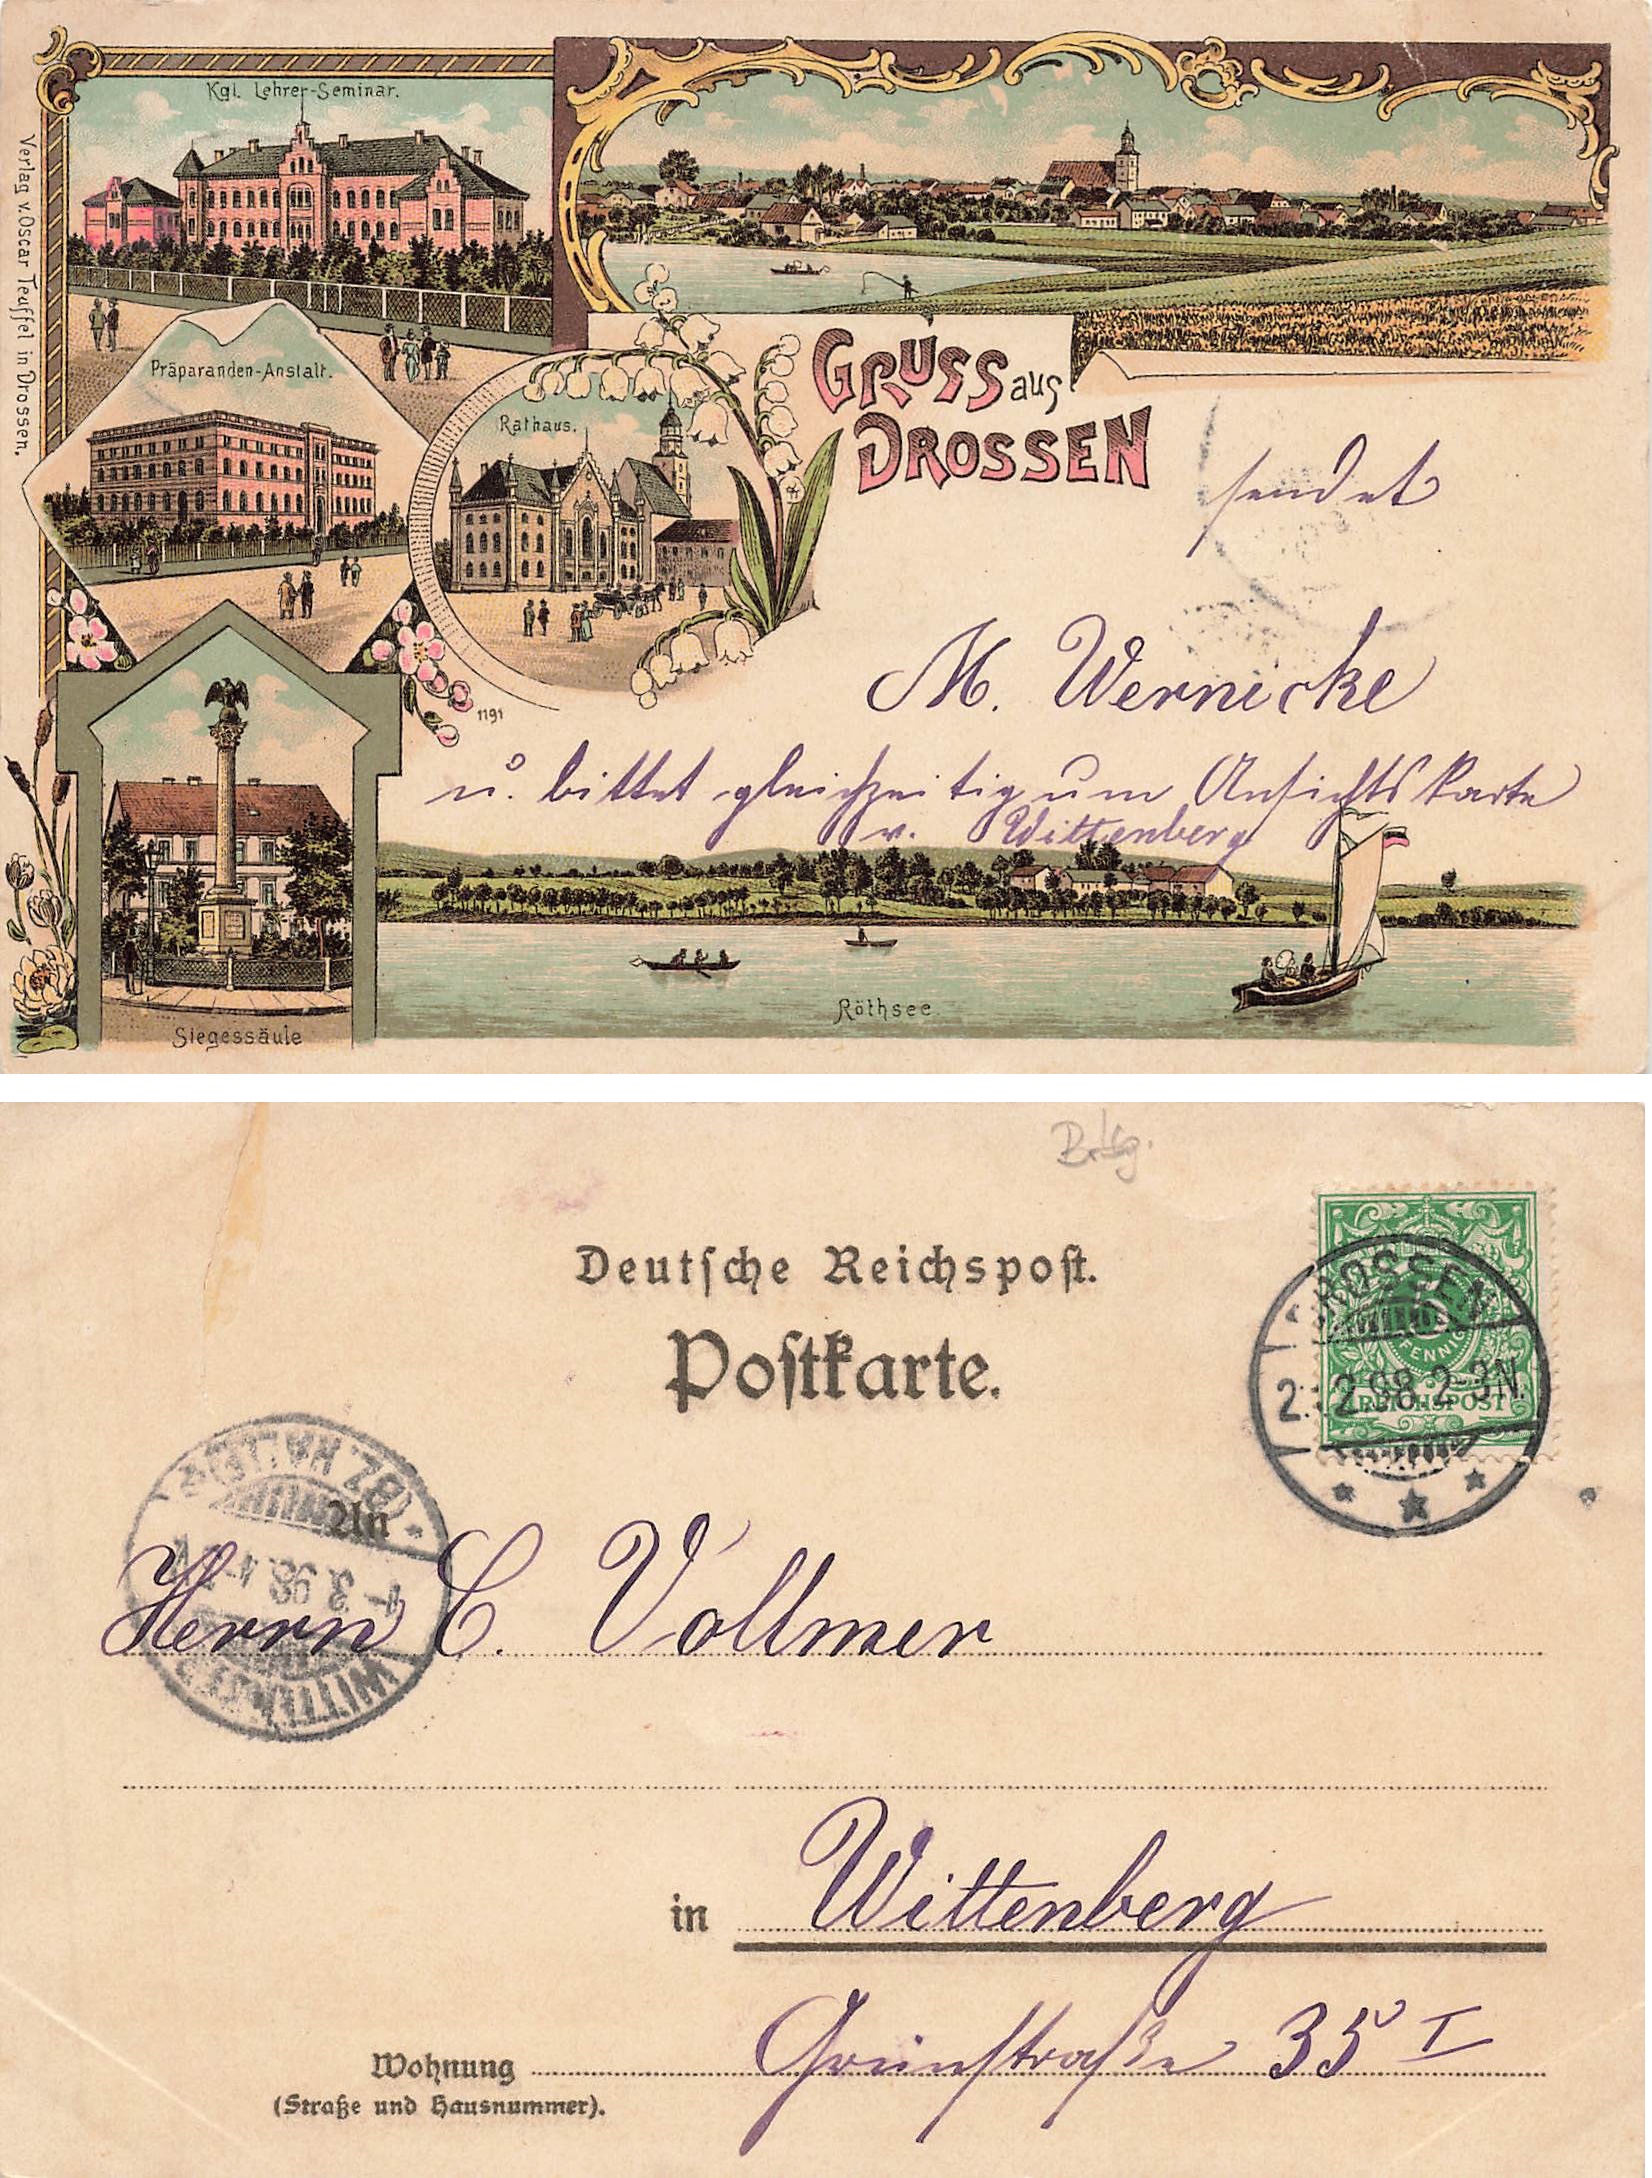 Kgl. Lehrer-Seminar.
Verlag v. Oscar Teuffel in Drossen.
Präparanden-Anstalt.
Rathaus.
GRUSS aus
DROSSEN
sendet
M. Wernicke
u. bittet gleichzeitig um Ansichtskarte
v. Wittenberg
1191
Röthsee
Siegessäule
Deutsche Reichspost.
Postkarte.
DROSSEN
2. 2 98 2-3N.
PFENNIG
REICHSPOST
WITTENBERG
3. 98.
(BZ. HALLE)
An
Herrn C. Vollmer
in Wittenberg
Grünstraße 35 I
Wohnung
(Straße und Hausnummer).